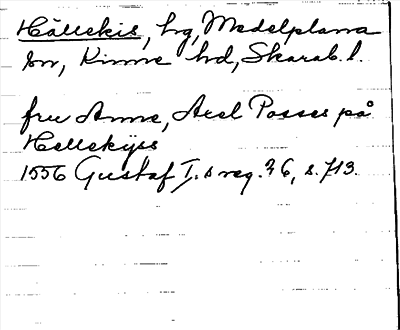 Hällekis, hg, Medelplana
sn, Kinne hd, Skarab. l.
fru Anne, Axel Posses på
Hellekijss
1556 Gustaf I.s reg. 26, s. 713.